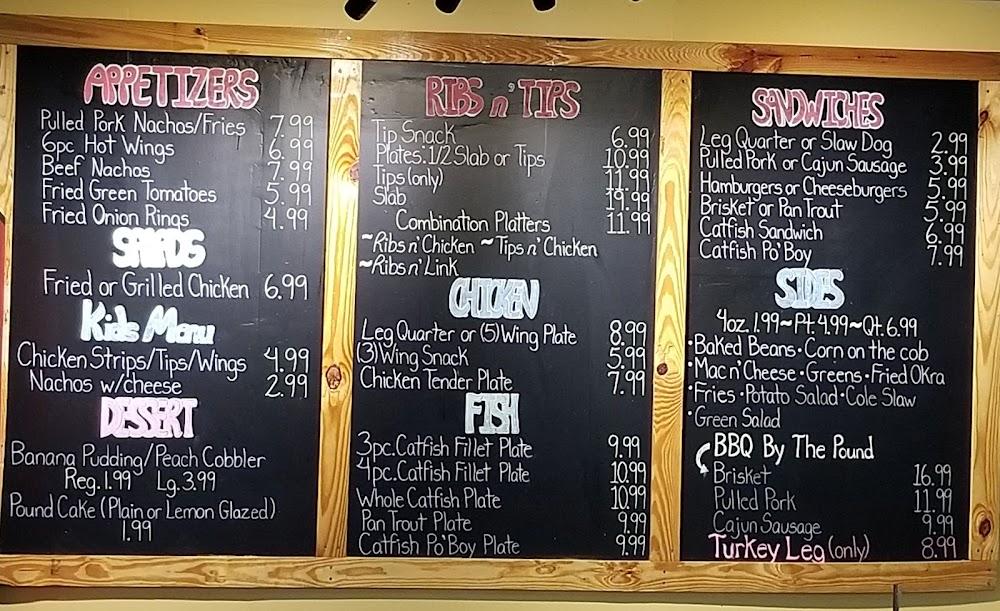 APPETIZERS
Pulled Pork Nachos/Fries 7.99
6pc. Hot Wings 6.99
Beef Nachos 7.99
Fried Green Tomatoes 5.99
Fried Onion Rings 4.99
SALADS
Fried or Grilled Chicken 6.99
Kids Menu
Chicken Strips/Tips/Wings 4.99
Nachos w/cheese 2.99
DESSERT
Banana Pudding/Peach Cobbler
Reg. 1.99 Lg. 3.99
Pound Cake (Plain or Lemon Glazed)
1.99
RIBS n' TIPS
Tip Snack 6.99
Plates: 1/2 Slab or Tips 10.99
Tips (only) 11.99
Slab 19.99
Combination Platters 11.99
~Ribs n' Chicken ~Tips n' Chicken
~Ribs n' Link
CHICKEN
Leg Quarter or (5) Wing Plate 8.99
(3) Wing Snack 5.99
Chicken Tender Plate 7.99
FISH
3pc. Catfish Fillet Plate 9.99
4pc. Catfish Fillet Plate 10.99
Whole Catfish Plate 10.99
Pan Trout Plate 9.99
Catfish Po' Boy Plate 9.99
SANDWICHES
Leg Quarter or Slaw Dog 2.99
Pulled Pork or Cajun Sausage 3.99
Hamburgers or Cheeseburgers 5.99
Brisket or Pan Trout 5.99
Catfish Sandwich 6.99
Catfish Po' Boy 7.99
SIDES
4oz. 1.99 ~ Pt. 4.99 ~ Qt. 6.99
•Baked Beans • Corn on the cob
•Mac n' Cheese • Greens • Fried Okra
•Fries • Potato Salad • Cole Slaw
•Green Salad
BBQ By The Pound
Brisket 16.99
Pulled Pork 11.99
Cajun Sausage 9.99
Turkey Leg (only) 8.99